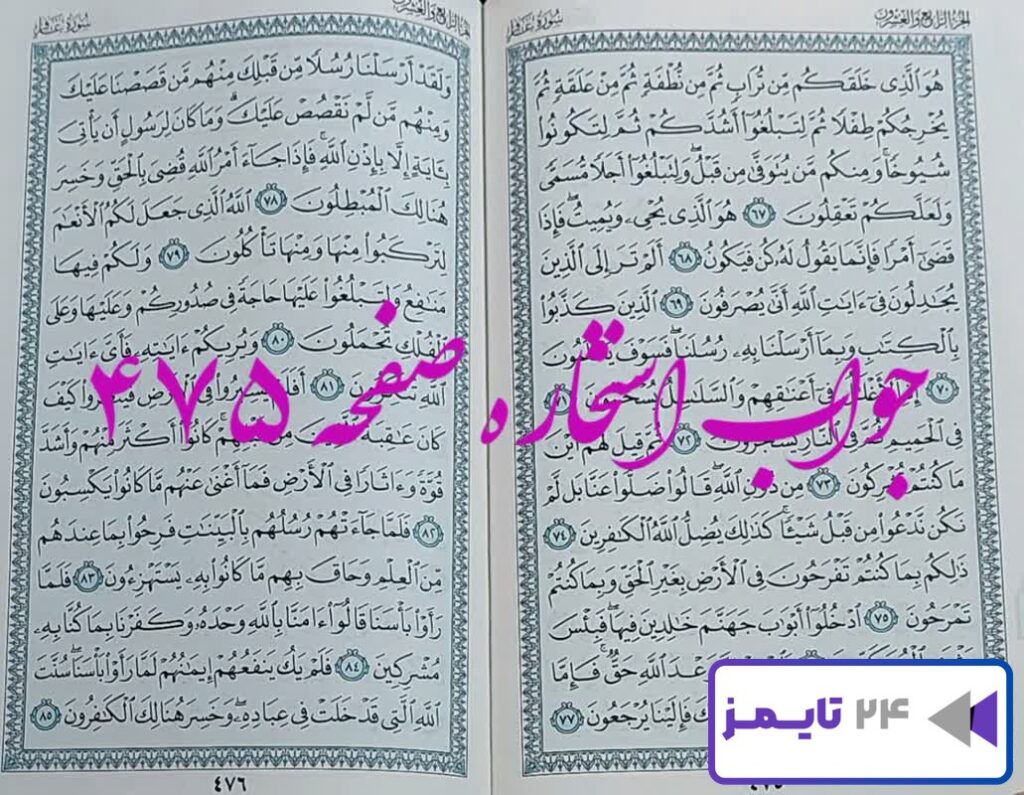 الجزء الرابع والعشرون
سورة غافر
هُوَ ٱلَّذِى خَلَقَكُم مِّن تُرَابٍ ثُمَّ مِن نُّطْفَةٍ ثُمَّ مِنْ عَلَقَةٍ ثُمَّ
يُخْرِجُكُمْ طِفْلًا ثُمَّ لِتَبْلُغُوٓا۟ أَشُدَّكُمْ ثُمَّ لِتَكُونُوا۟
شُيُوخًا وَمِنكُم مَّن يُتَوَفَّىٰ مِن قَبْلُ وَلِتَبْلُغُوٓا۟ أَجَلًا مُّسَمًّى
وَلَعَلَّكُمْ تَعْقِلُونَ ٦٧ هُوَ ٱلَّذِى يُحْىِۦ وَيُمِيتُ فَإِذَا
قَضَىٰٓ أَمْرًا فَإِنَّمَا يَقُولُ لَهُۥ كُن فَيَكُونُ ٦٨ أَلَمْ تَرَ إِلَى ٱلَّذِينَ
يُجَٰدِلُونَ فِىٓ ءَايَٰتِ ٱللَّهِ أَنَّىٰ يُصْرَفُونَ ٦٩ ٱلَّذِينَ كَذَّبُوا۟
بِٱلْكِتَٰبِ وَبِمَآ أَرْسَلْنَا بِهِۦ رُسُلَنَا فَسَوْفَ يَعْلَمُونَ
٧٠ إِذِ ٱلْأَغْلَٰلُ فِىٓ أَعْنَٰقِهِمْ وَٱلسَّلَٰسِلُ يُسْحَبُونَ ٧١
فِى ٱلْحَمِيمِ ثُمَّ فِى ٱلنَّارِ يُسْجَرُونَ ٧٢ ثُمَّ قِيلَ لَهُمْ أَيْنَ
مَا كُنتُمْ تُشْرِكُونَ ٧٣ مِن دُونِ ٱللَّهِ قَالُوا۟ ضَلُّوا۟ عَنَّا بَل لَّمْ
نَكُن نَّدْعُوا۟ مِن قَبْلُ شَيْـًٔا كَذَٰلِكَ يُضِلُّ ٱللَّهُ ٱلْكَٰفِرِينَ ٧٤
ذَٰلِكُم بِمَا كُنتُمْ تَفْرَحُونَ فِى ٱلْأَرْضِ بِغَيْرِ ٱلْحَقِّ وَبِمَا كُنتُمْ
تَمْرَحُونَ ٧٥ ٱدْخُلُوٓا۟ أَبْوَٰبَ جَهَنَّمَ خَٰلِدِينَ فِيهَا فَبِئْسَ
وَعْدَ ٱللَّهِ حَقٌّ فَإِمَّا
فَإِلَيْنَا يُرْجَعُونَ ٧٧
الجزء الرابع والعشرون
سورة غافر
وَلَقَدْ أَرْسَلْنَا رُسُلًا مِّن قَبْلِكَ مِنْهُم مَّن قَصَصْنَا عَلَيْكَ
وَمِنْهُم مَّن لَّمْ نَقْصُصْ عَلَيْكَ وَمَا كَانَ لِرَسُولٍ أَن يَأْتِىَ
بِـَٔايَةٍ إِلَّا بِإِذْنِ ٱللَّهِ فَإِذَا جَآءَ أَمْرُ ٱللَّهِ قُضِىَ بِٱلْحَقِّ وَخَسِرَ
هُنَالِكَ ٱلْمُبْطِلُونَ ٧٨ ٱللَّهُ ٱلَّذِى جَعَلَ لَكُمُ ٱلْأَنْعَٰمَ
لِتَرْكَبُوا۟ مِنْهَا وَمِنْهَا تَأْكُلُونَ ٧٩ وَلَكُمْ فِيهَا
مَنَٰفِعُ وَلِتَبْلُغُوا۟ عَلَيْهَا حَاجَةً فِى صُدُورِكُمْ وَعَلَيْهَا وَعَلَى
ٱلْفُلْكِ تُحْمَلُونَ ٨٠ وَيُرِيكُمْ ءَايَٰتِهِۦ فَأَىَّ ءَايَٰتِ
ٱللَّهِ تُنكِرُونَ ٨١ أَفَلَمْ يَسِيرُوا۟ فِى ٱلْأَرْضِ فَيَنظُرُوا۟ كَيْفَ
كَانَ عَٰقِبَةُ ٱلَّذِينَ مِن قَبْلِهِمْ كَانُوٓا۟ أَكْثَرَ مِنْهُمْ وَأَشَدَّ
قُوَّةً وَءَاثَارًا فِى ٱلْأَرْضِ فَمَآ أَغْنَىٰ عَنْهُم مَّا كَانُوا۟ يَكْسِبُونَ
٨٢ فَلَمَّا جَآءَتْهُمْ رُسُلُهُم بِٱلْبَيِّنَٰتِ فَرِحُوا۟ بِمَا عِندَهُم
مِّنَ ٱلْعِلْمِ وَحَاقَ بِهِم مَّا كَانُوا۟ بِهِۦ يَسْتَهْزِءُونَ ٨٣ فَلَمَّا
رَأَوْا۟ بَأْسَنَا قَالُوٓا۟ ءَامَنَّا بِٱللَّهِ وَحْدَهُۥ وَكَفَرْنَا بِمَا كُنَّا بِهِۦ
مُشْرِكِينَ ٨٤ فَلَمْ يَكُ يَنفَعُهُمْ إِيمَٰنُهُمْ لَمَّا رَأَوْا۟ بَأْسَنَا سُنَّتَ
ٱللَّهِ ٱلَّتِى قَدْ خَلَتْ فِى عِبَادِهِۦ وَخَسِرَ هُنَالِكَ ٱلْكَٰفِرُونَ ٨٥
٤٧٦
جواب استخاره صفحه ۴۷۵
۲۴ تایمز